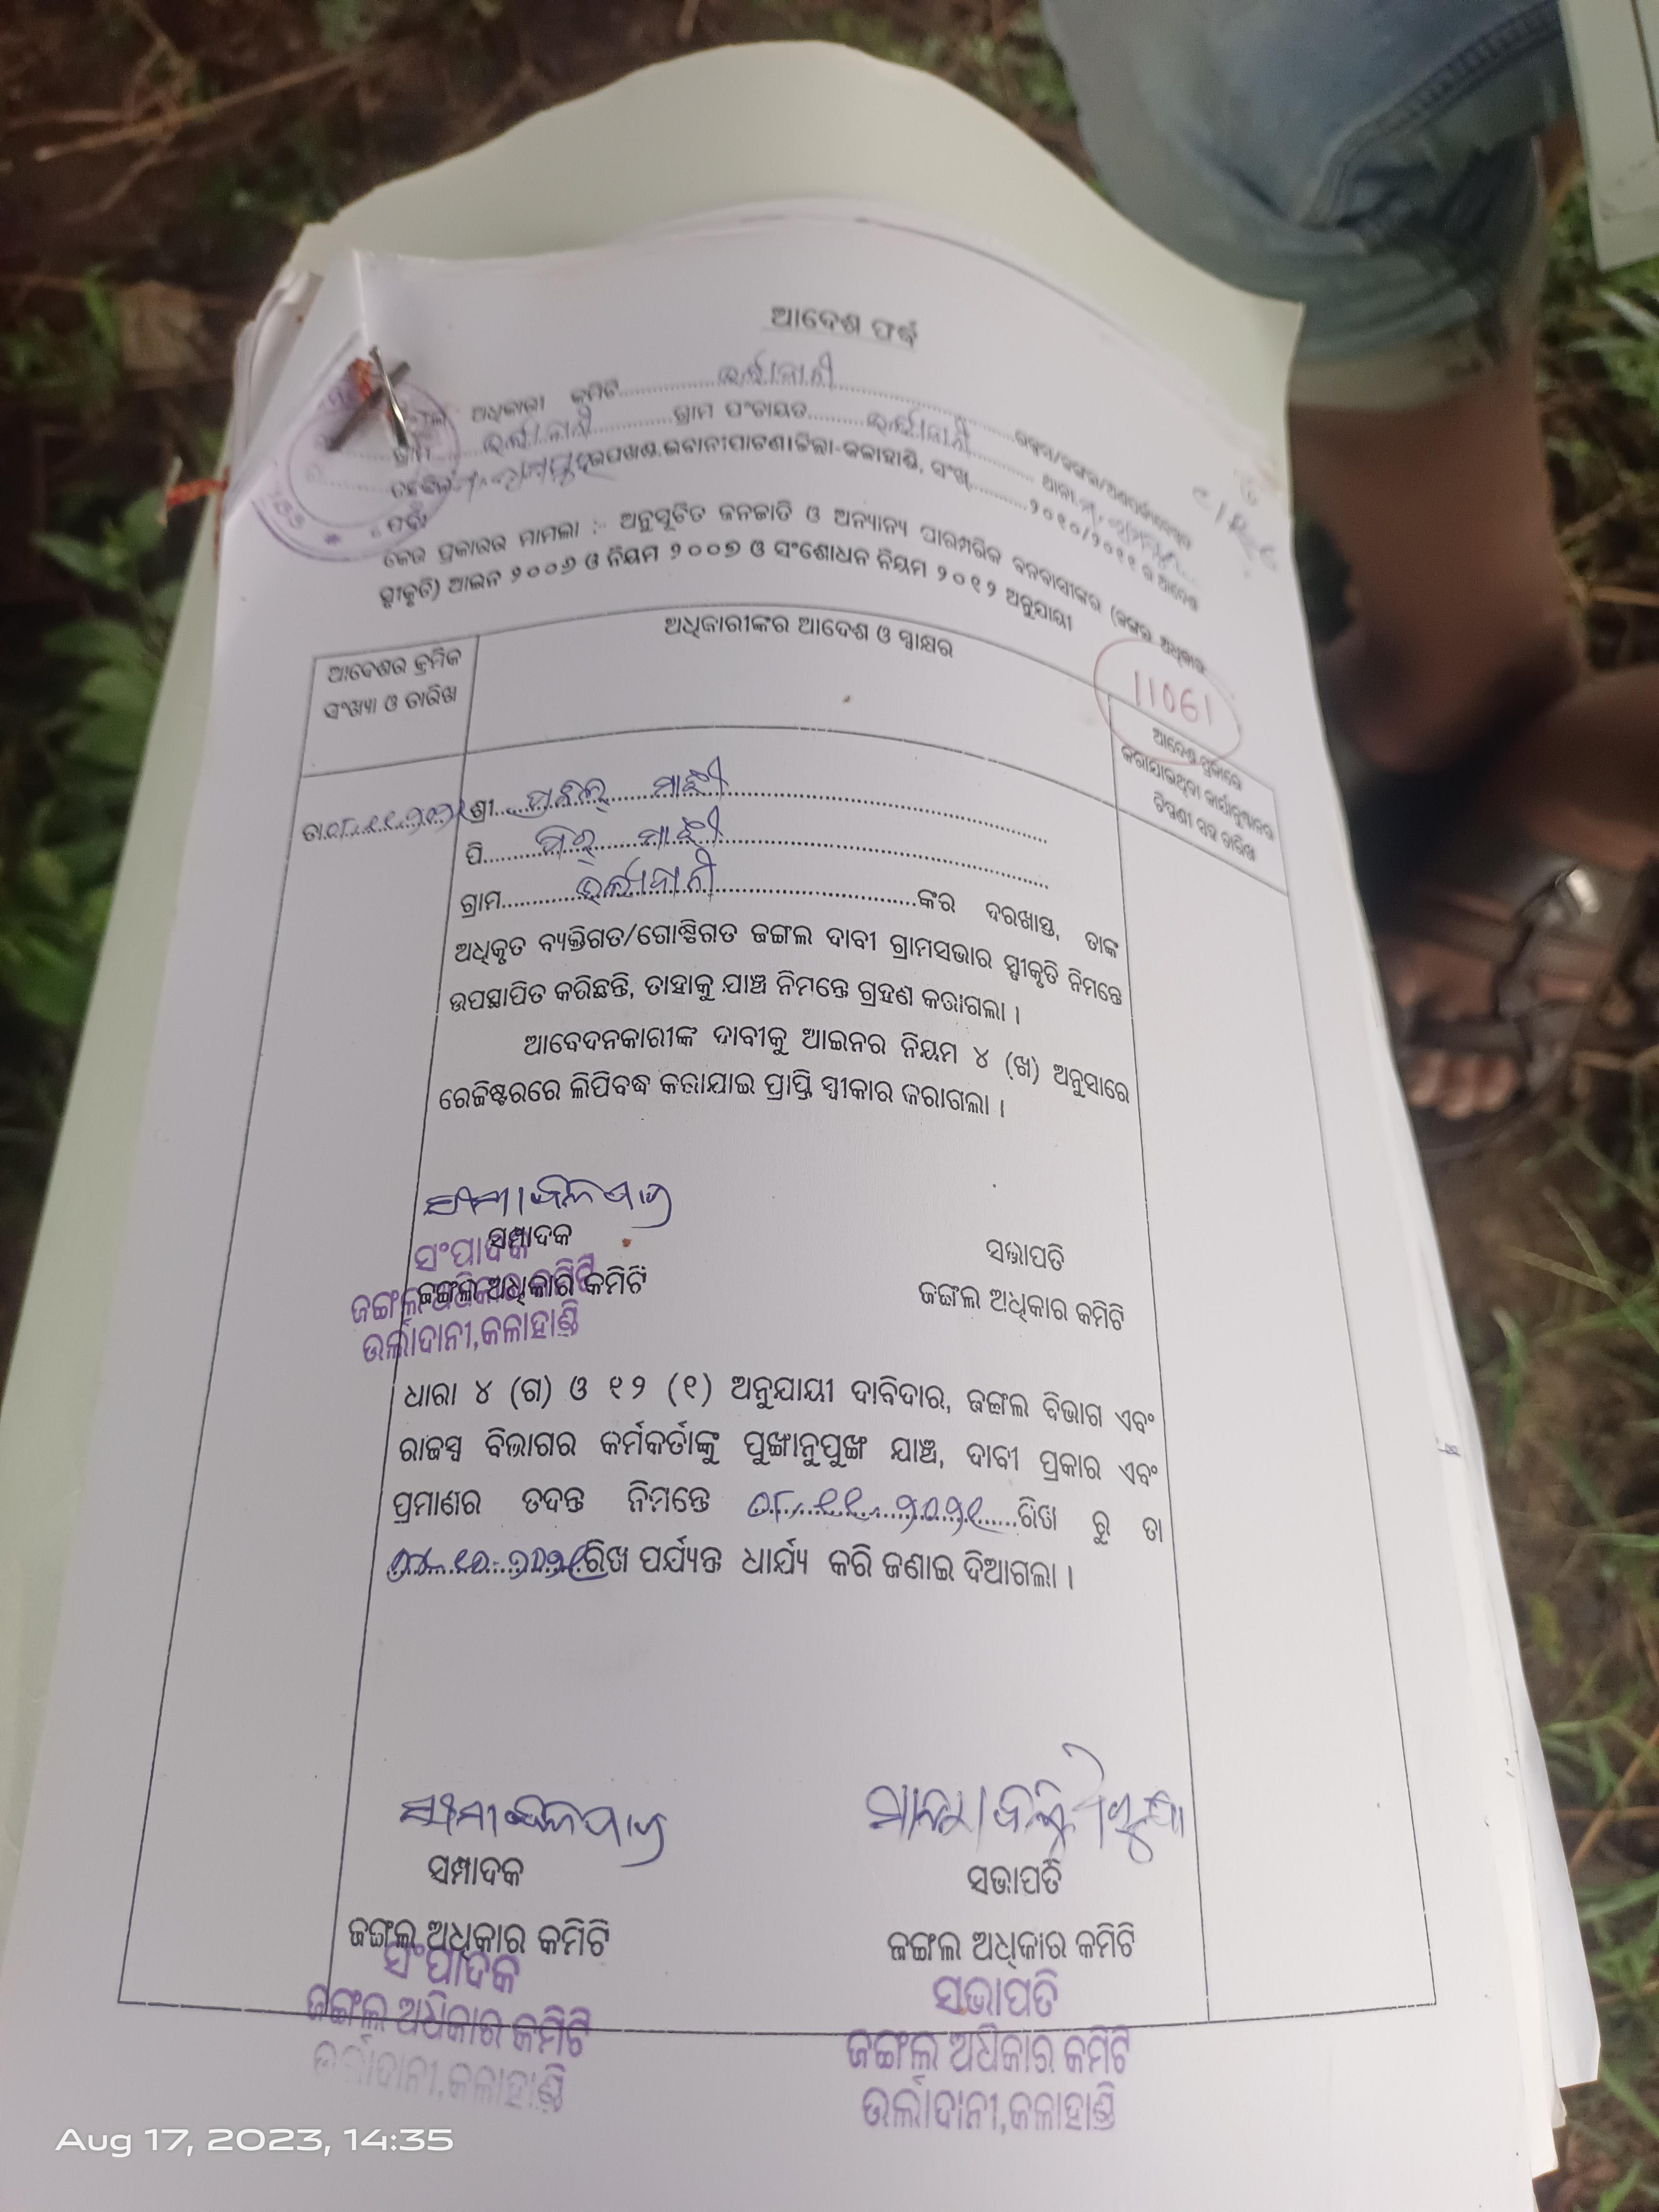 ଆଦେଶ ଫର୍ଦ୍ଦ
ଅଧିକାରୀ କମିଟି ଉର୍ଲାଦାନୀ
ଗ୍ରାମ ଉର୍ଲାଦାନୀ ଗ୍ରାମ ପଂଚାୟତ ଉର୍ଲାଦାନୀ
ଉପଖଣ୍ଡ-ଭବାନୀପାଟଣା ଜିଲ୍ଲା-କଳାହାଣ୍ଡି, ସଂଖ୍ୟା ୨୦୧୦/୨୦୧୧ ର ଆଦେଶ
ଫର୍ଦ୍ଦ
କେଉଁ ପ୍ରକାରର ମାମଲା :- ଅନୁସୂଚିତ ଜନଜାତି ଓ ଅନ୍ୟାନ୍ୟ ପାରମ୍ପରିକ ବନବାସୀଙ୍କର (ଜଙ୍ଗଲ ଅଧିକାର
ସ୍ବୀକୃତି) ଆଇନ ୨୦୦୬ ଓ ନିୟମ ୨୦୦୭ ଓ ସଂଶୋଧନ ନିୟମ ୨୦୧୨ ଅନୁଯାୟୀ
11061
ଆଦେଶର କ୍ରମିକ
ସଂଖ୍ୟା ଓ ତାରିଖ
ଅଧିକାରୀଙ୍କର ଆଦେଶ ଓ ସ୍ୱାକ୍ଷର
ଆଦେଶ ପ୍ରକାରେ
କରାଯାଇଥିବା କାର୍ଯ୍ୟାନୁଷ୍ଠାନର
ଟିପ୍ପଣୀ ସହ ତାରିଖ
ତା ୦୮.୧୧.୨୦୨୧ ଶ୍ରୀ ମାଝୀ
ପି ମାଝୀ
ଗ୍ରାମ ଉର୍ଲାଦାନୀ ଙ୍କର ଦରଖାସ୍ତ, ତାଙ୍କ
ଅଧିକୃତ ବ୍ୟକ୍ତିଗତ/ଗୋଷ୍ଠିଗତ ଜଙ୍ଗଲ ଦାବୀ ଗ୍ରାମସଭାର ସ୍ୱୀକୃତି ନିମନ୍ତେ
ଉପସ୍ଥାପିତ କରିଛନ୍ତି, ତାହାକୁ ଯାଞ୍ଚ ନିମନ୍ତେ ଗ୍ରହଣ କରାଗଲା ।
ଆବେଦନକାରୀଙ୍କ ଦାବୀକୁ ଆଇନର ନିୟମ ୪ (ଖ) ଅନୁସାରେ
ରେଜିଷ୍ଟରରେ ଲିପିବଦ୍ଧ କରାଯାଇ ପ୍ରାପ୍ତି ସ୍ୱୀକାର କରାଗଲା ।
ସମ୍ପାଦକ
ସଂପାଦକ
ସଭାପତି
ଜଙ୍ଗଲ ଅଧିକାର କମିଟି
ଜଙ୍ଗଲ ଅଧିକାର କମିଟି
ଜଙ୍ଗଲ ଅଧିକାର କମିଟି
ଉର୍ଲାଦାନୀ,କଳାହାଣ୍ଡି
ଧାରା ୪ (ଗ) ଓ ୧୨ (୧) ଅନୁଯାୟୀ ଦାବିଦାର, ଜଙ୍ଗଲ ବିଭାଗ ଏବଂ
ରାଜସ୍ୱ ବିଭାଗର କର୍ମକର୍ତାଙ୍କୁ ପୁଙ୍ଖାନୁପୁଙ୍ଖ ଯାଞ୍ଚ, ଦାବୀ ପ୍ରକାର ଏବଂ
ପ୍ରମାଣର ତଦନ୍ତ ନିମନ୍ତେ ୦୮.୧୧.୨୦୨୧ ରିଖ ରୁ ତା
ରିଖ ପର୍ଯ୍ୟନ୍ତ ଧାର୍ଯ୍ୟ କରି ଜଣାଇ ଦିଆଗଲା ।
ସମ୍ପାଦକ
ସଭାପତି
ଜଙ୍ଗଲ ଅଧିକାର କମିଟି
ଜଙ୍ଗଲ ଅଧିକାର କମିଟି
ସଂପାଦକ
ସଭାପତି
ଜଙ୍ଗଲ ଅଧିକାର କମିଟି
ଜଙ୍ଗଲ ଅଧିକାର କମିଟି
ଉର୍ଲାଦାନୀ,କଳାହାଣ୍ଡି
ଉର୍ଲାଦାନୀ,କଳାହାଣ୍ଡି
Aug 17, 2023, 14:35